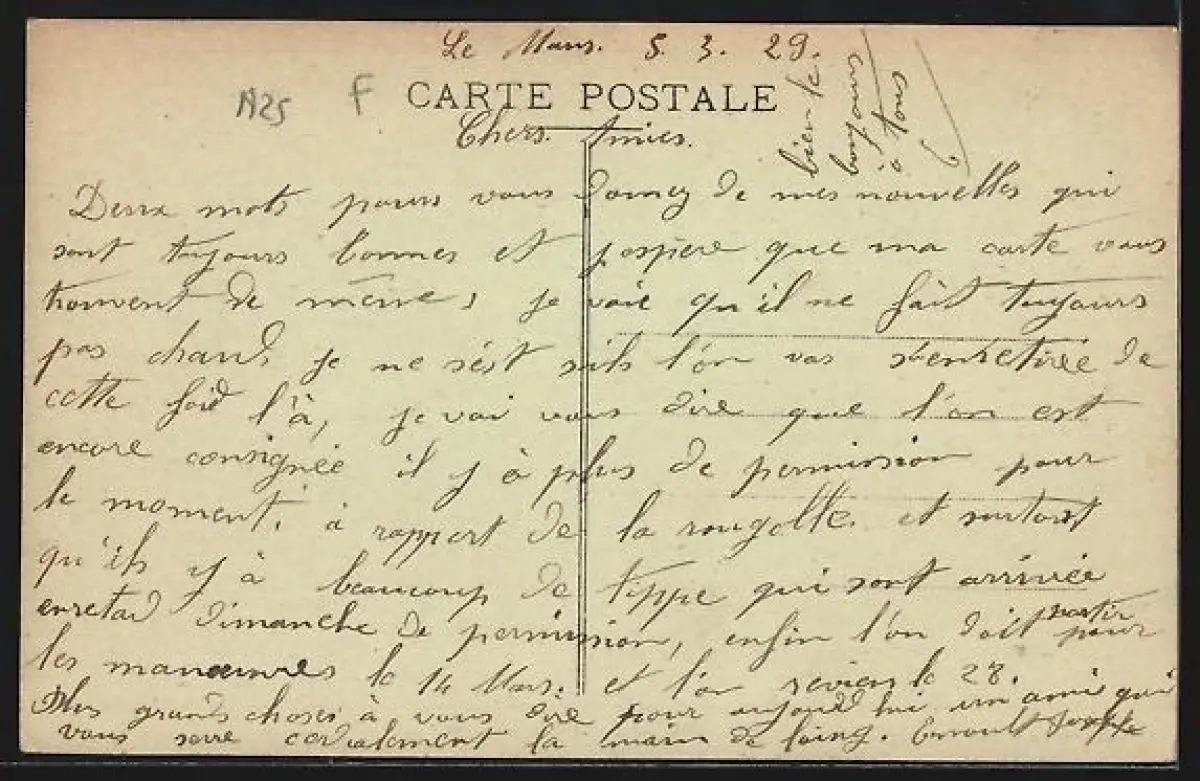 Le Mans. 5. 3. 29.
A25 F CARTE POSTALE
Chers. Amies.
Deux mots pours vous donnez de mes nouvelles qui
sont toujours bonnes et j'ospère que ma carte vous
trouvent de même, je voie qu'il ne fait toujours
pas chaud, je ne s'ést l'on vas s'enretirée de
cette foid l'à, je vai vous dire que l'on est
encore consignée il y à plus de permission pour
le moment. à rapport de la rougolle. et surtout
qu'ils y à beaucoup de tippe qui sont arrivée
enretad dimanche de permission, enfin l'on doit partir pour
les manœuvres le 14 Mars. et l'on reviens le 28.
Plus grands choses à vous dire pour aujourd hui un amie qui
vous serre cordialement la main de loing. Joseph
bien le
bonjours
à tous